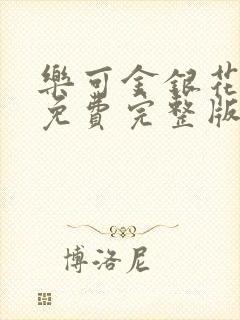 樂可金銀花
免費完整版
博洛尼